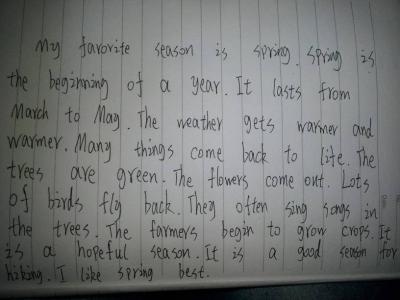 My favorite season is spring. spring is
the beginning of a year. It lasts from
March to May. The weather gets warmer and
warmer. Many things come back to life. The
trees are green. The flowers come out. Lots
of birds fly back. They often sing songs in
the trees. The farmers begin to grow crops. It
is a hopeful season. It is a good season for
hiking. I like spring best.